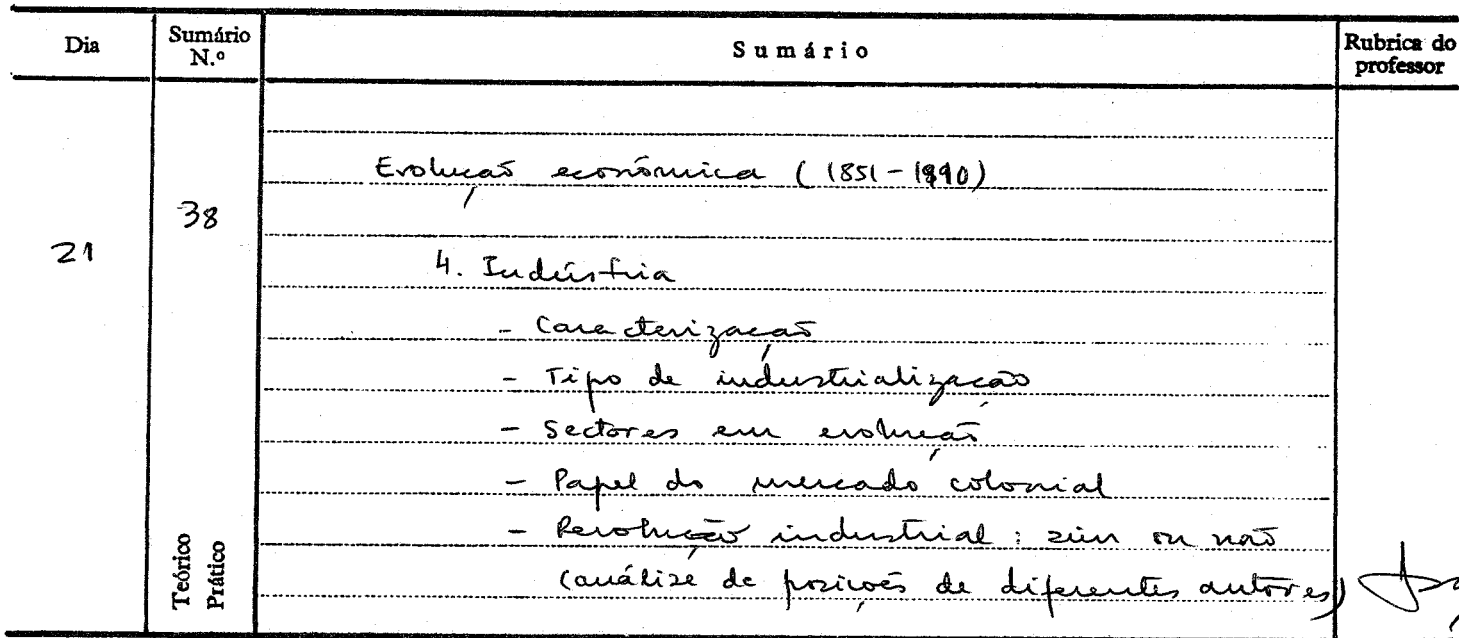 Dia Sumário N.º Sumário Rubrica do professor
Evolução económica (1851-1890)
38
21
4. Indústria
- Caracterização
- Tipo de industrialização
- Sectores em evolução
- Papel do mercado colonial
- Revolução industrial: sim ou não
(análise de posições de diferentes autores)
Teórico
Prático